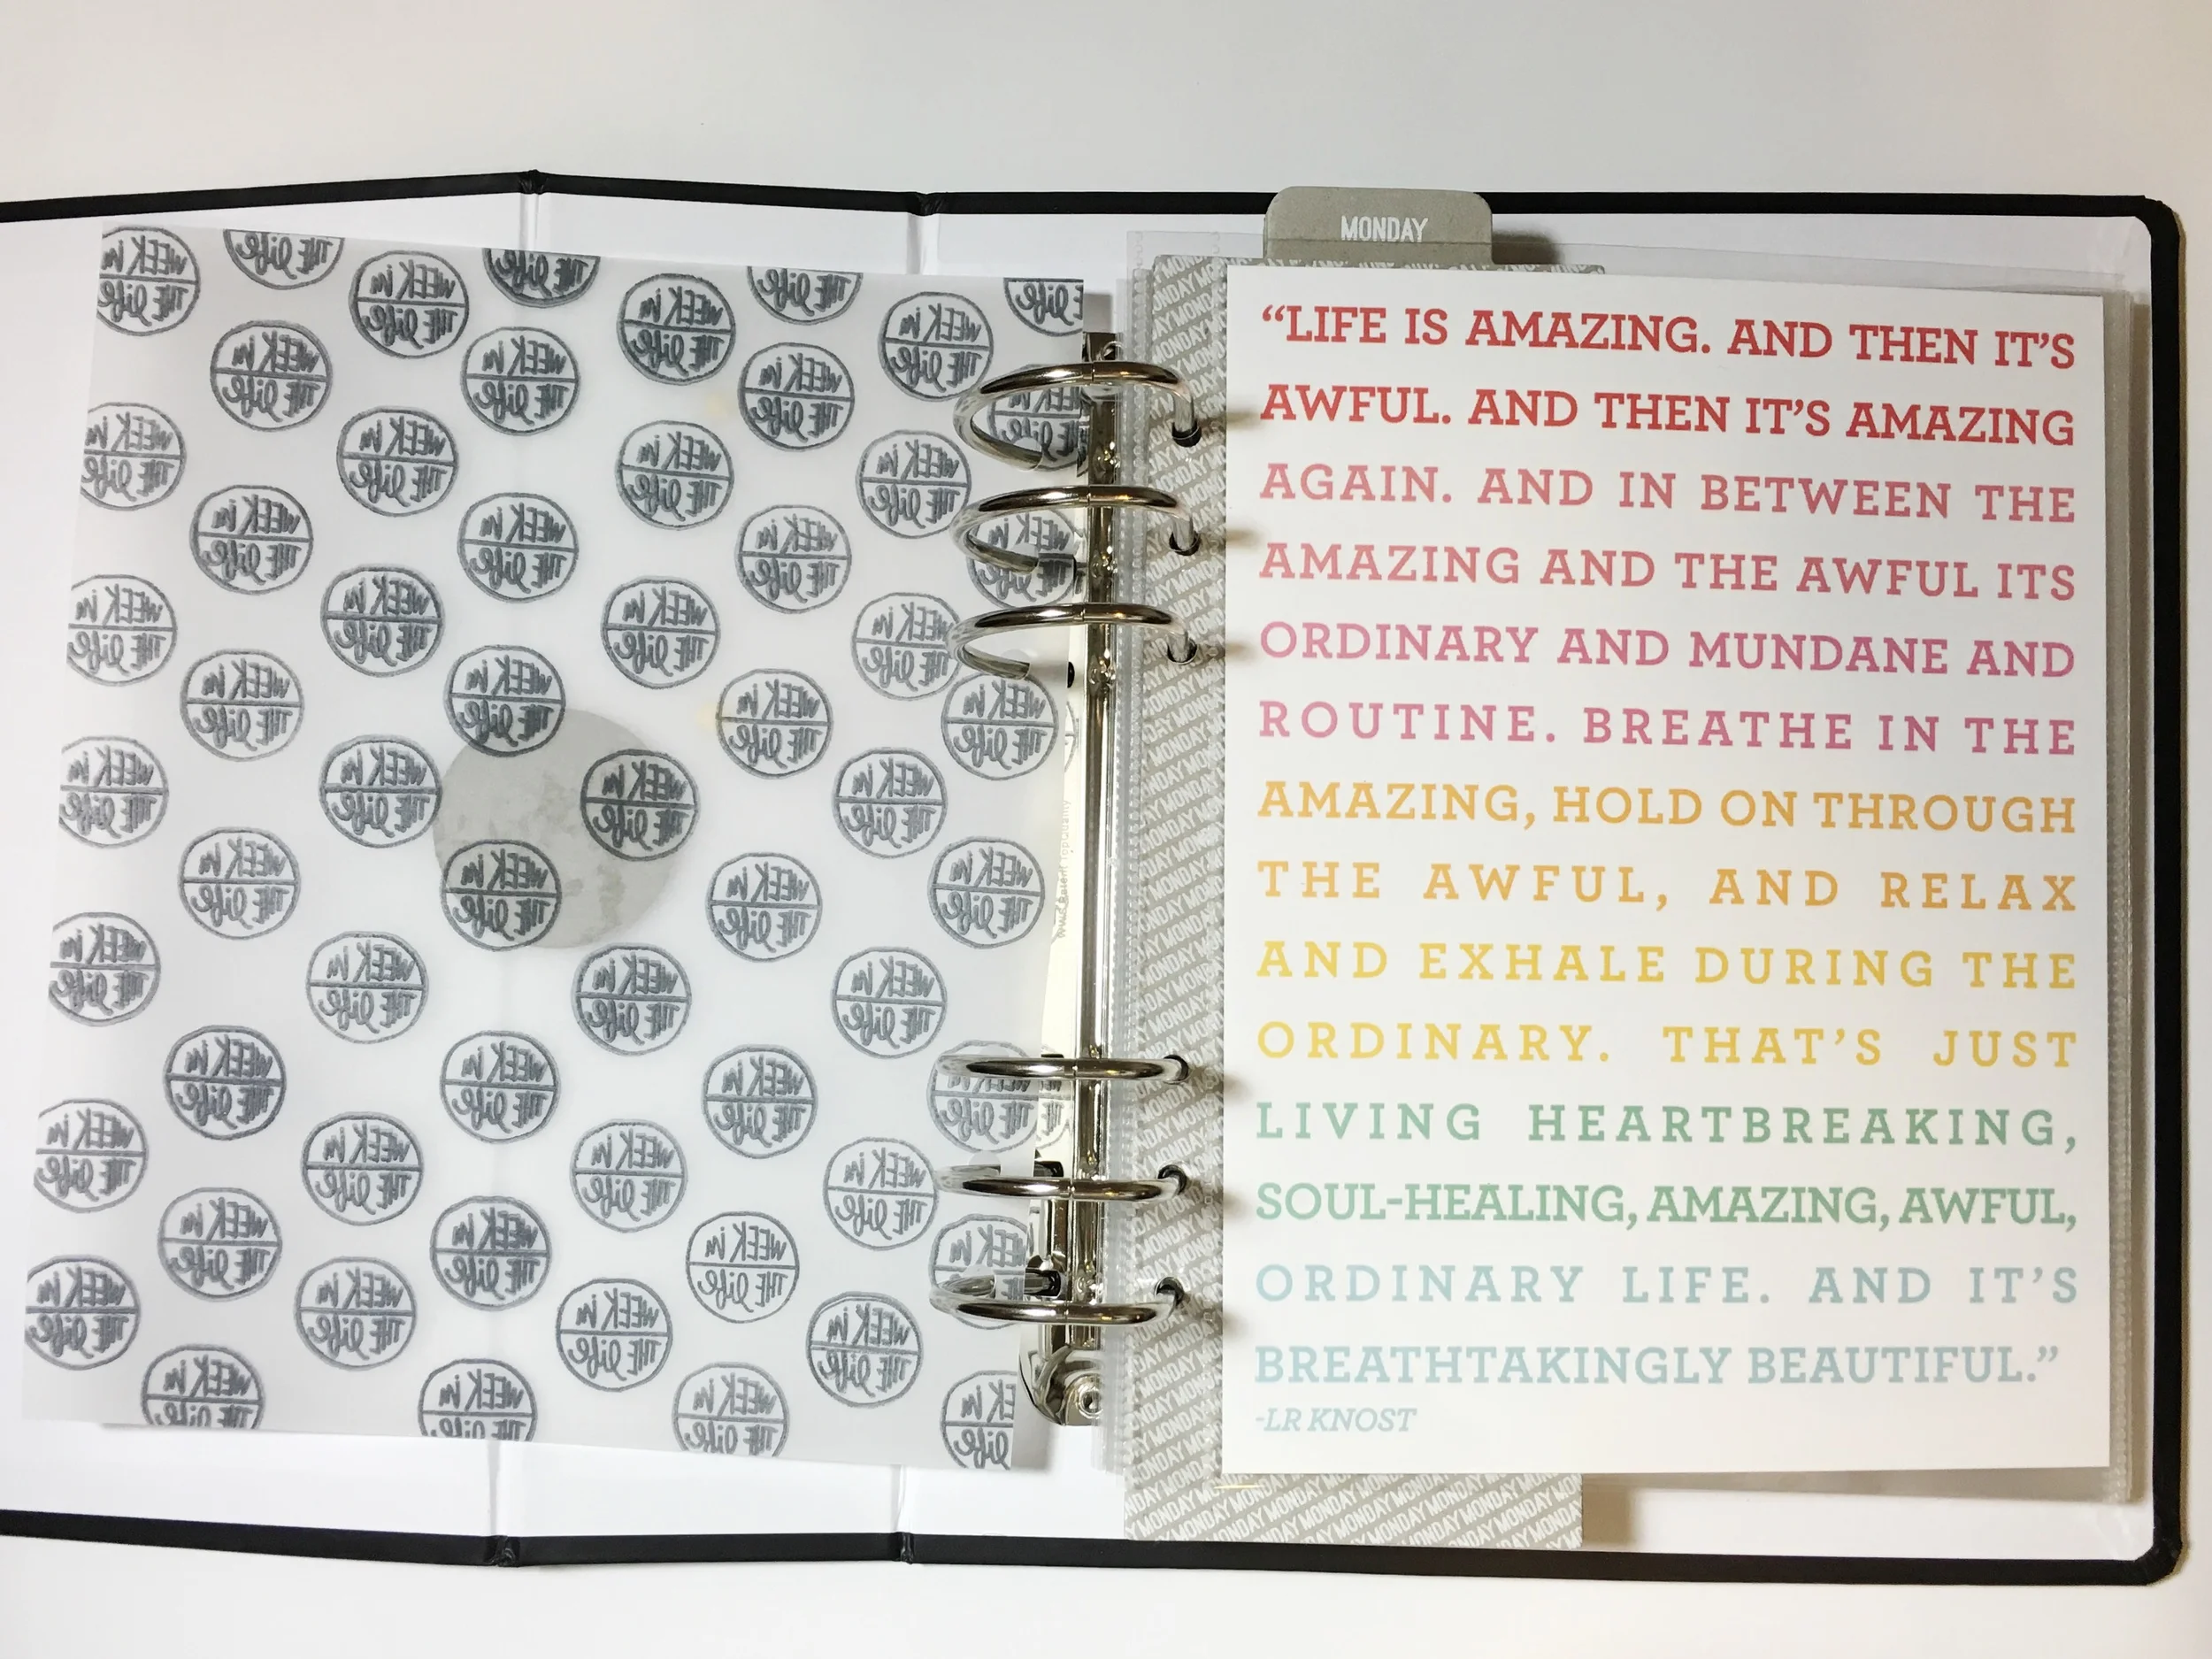 WEEK in
THE life
MONDAY
“LIFE IS AMAZING. AND THEN IT’S
AWFUL. AND THEN IT’S AMAZING
AGAIN. AND IN BETWEEN THE
AMAZING AND THE AWFUL ITS
ORDINARY AND MUNDANE AND
ROUTINE. BREATHE IN THE
AMAZING, HOLD ON THROUGH
THE AWFUL, AND RELAX
AND EXHALE DURING THE
ORDINARY. THAT’S JUST
LIVING HEARTBREAKING,
SOUL-HEALING, AMAZING, AWFUL,
ORDINARY LIFE. AND IT’S
BREATHTAKINGLY BEAUTIFUL.”
-LR KNOST